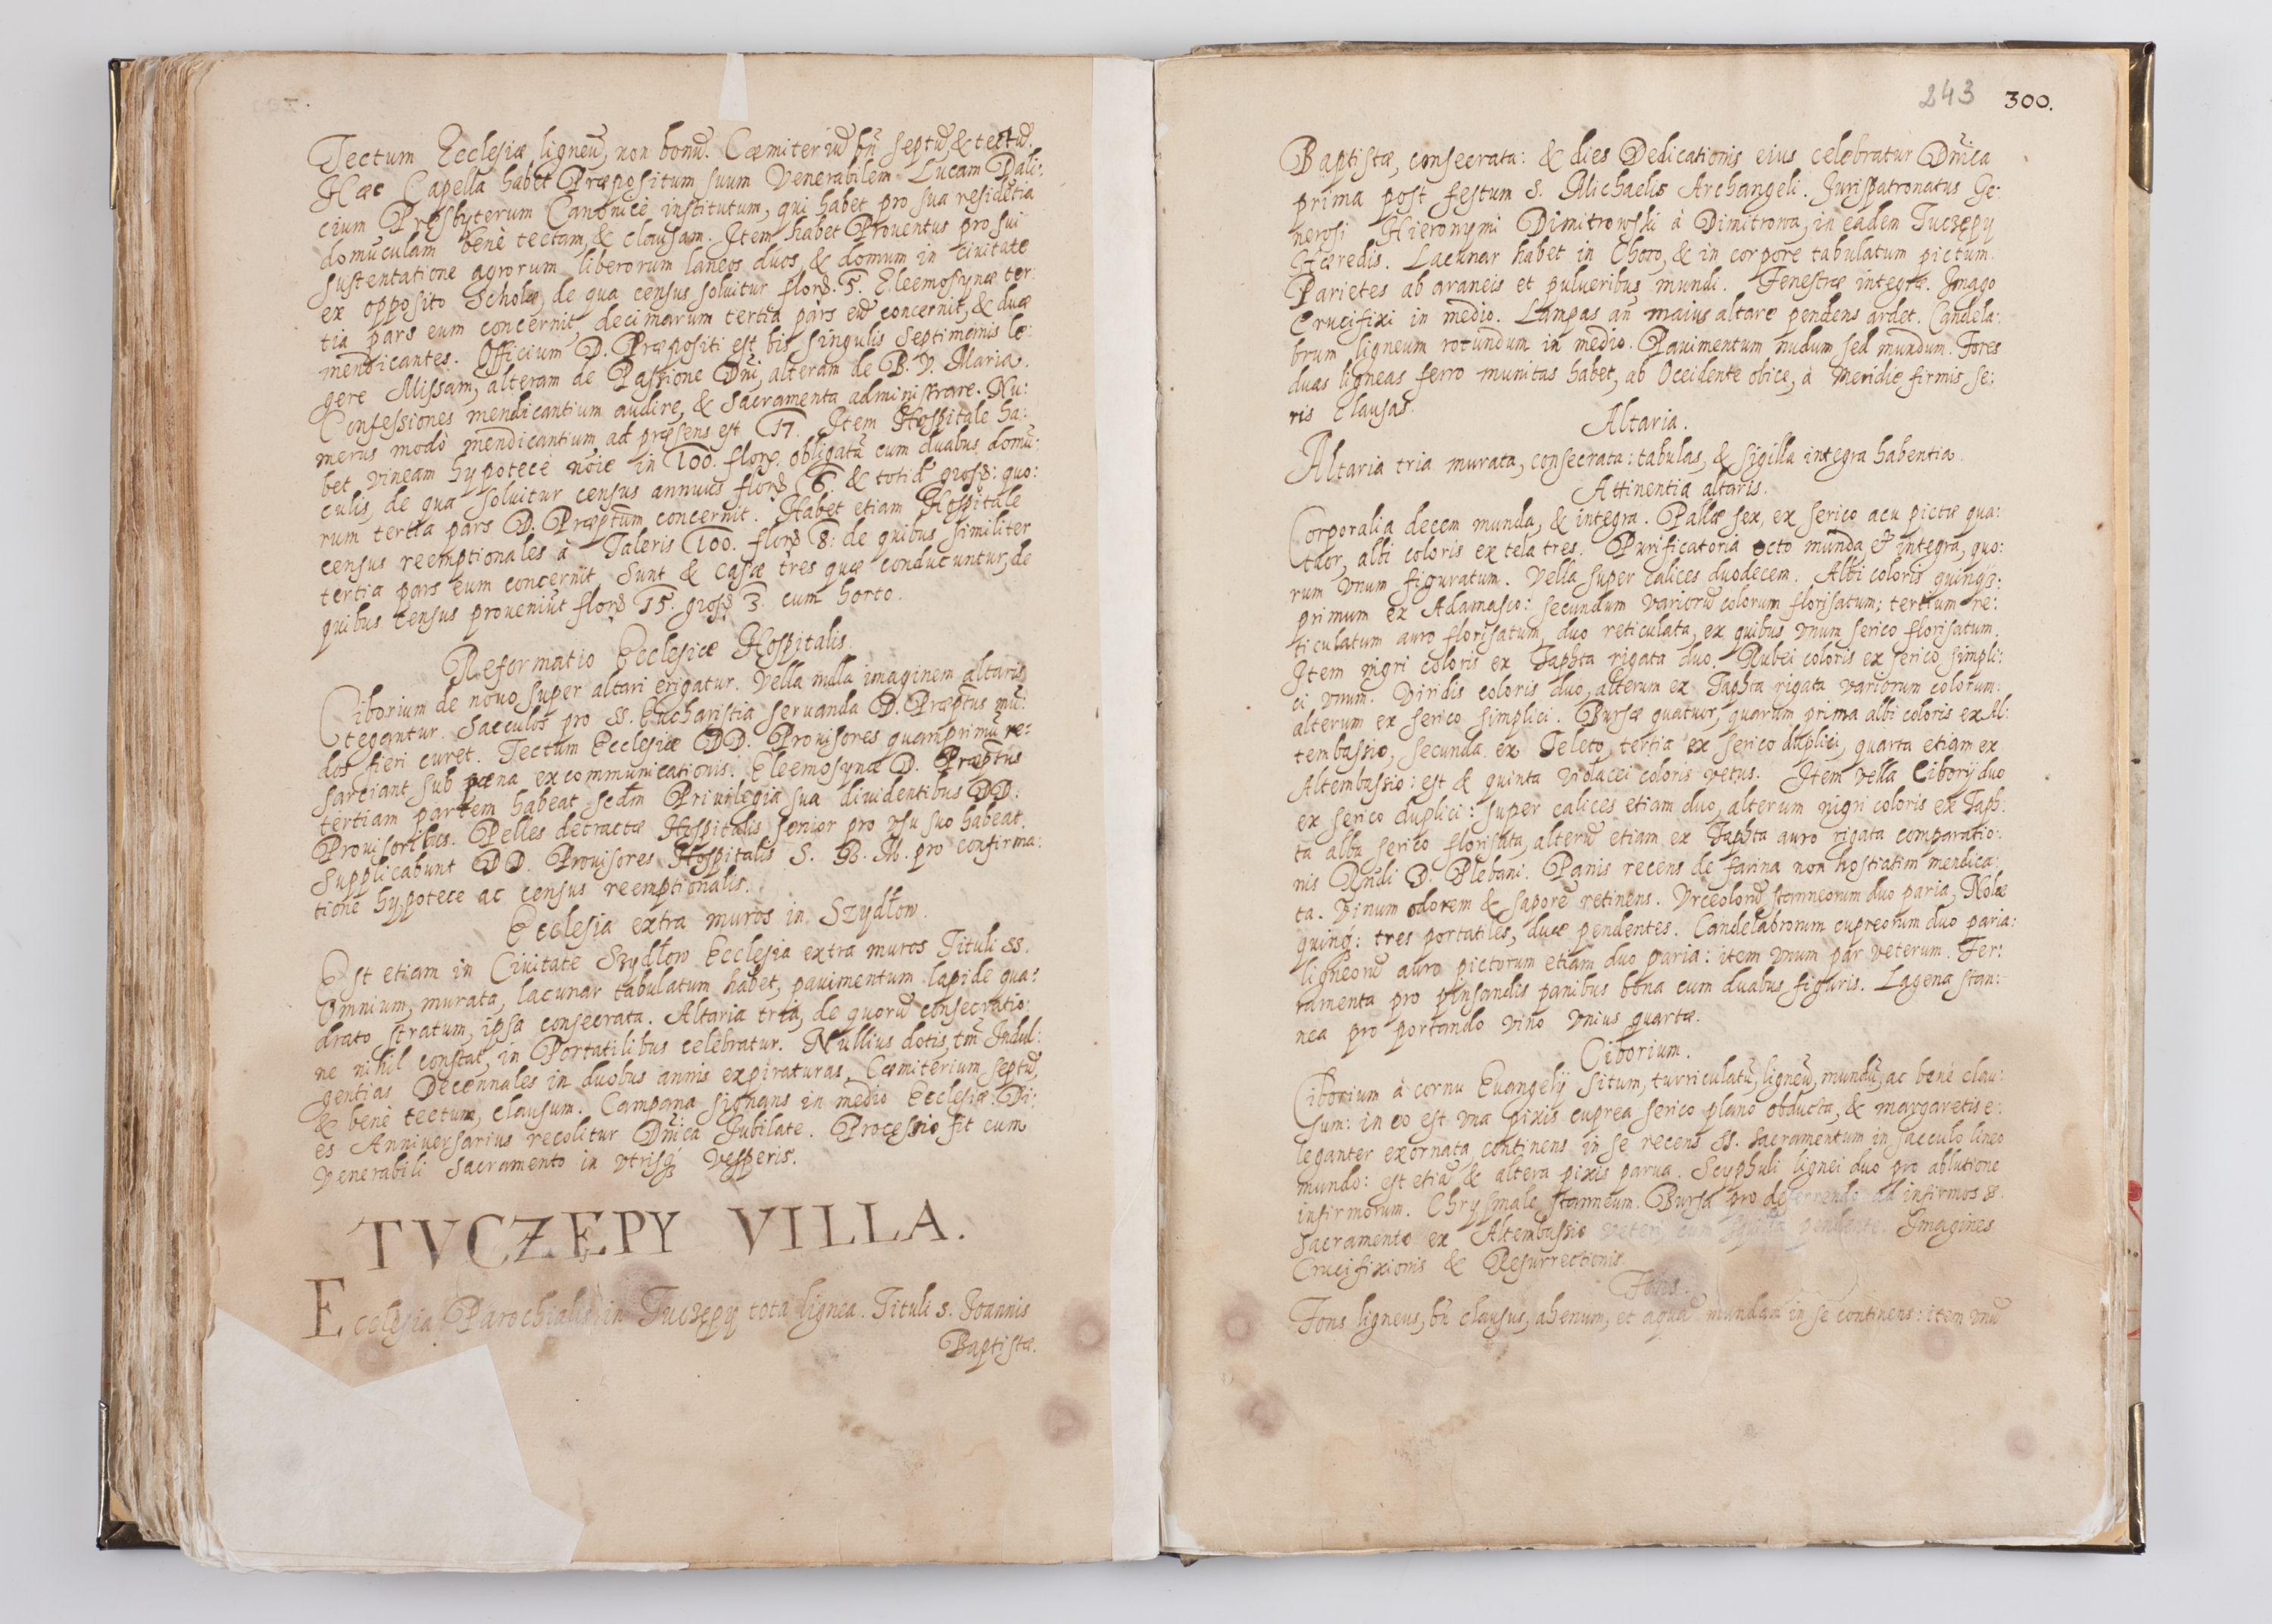 Tectum Ecclesiæ ligneũ, non bonũ. Cœmiteriũ bñ septũ, & tectũ.
Hæc Capella habet Præpositum suum Venerabilem Lucam Pali:
cium Præsbyterum Canonicè institutum, qui habet pro sua residẽtia
domunculam benè tectam, & clausam. Item habet Prouentus pro sui
sustentatione agrorum liberorum laneos duos, & domum in ciuitate
ex opposito Scholæ, de qua census soluitur flor. 5. Eleemosynæ ter:
tia pars eum concernit, decimarum tertia pars eũ concernit, & duæ
mendicantes. Officium D. Præpositi est bis singulis Septimanis le:
gere Missam, alteram de Passione Dñi, alteram de B. V. Maria.
Confessiones mendicantium audire, & Sacramenta administrare. Nu:
merus modò mendicantium ad præsens est 17. Item Hospitale ha:
bet vineam hypotecę noie in 100. flore. obligatã cum duabus domũ:
culis, de qua soluitur census annuus flor. 6 & totid gross: quo:
rum tertia pars D. Præptum concernit. Habet etiam Hospitale
census reemptionales à Taleris 100. flor 8: de quibus similiter
tertia pars eum concernit. Sunt & casæ tres quæ conducuntur, de
quibus census proueniũt flor 15. gross 3. cum horto.
Reformatio Ecclesiæ Hospitalis
Ciborium de nouo super altari erigatur. Vella nulla imaginem altaris
tegantur. Sacculos pro SS. Eucharistia seruanda D. Præptus mũ:
dos fieri curet. Tectum Ecclesiæ DD. Prouisores quamprimũ re:
sarciant sub pœna excommunicationis. Eleemosynæ D. Præptus
tertiam partem habeat sedm Priuilegia sua diuidentibus DD.
Prouisoribus. Pelles detractæ Hospitalis senior pro vsu suo habeat.
Supplicabunt DD. Prouisores Hospitalis S. R. M. pro confirma:
tione hypotece ac census reemptionalis.
Ecclesia extra muros in Szydłow.
Est etiam in Ciuitate Szydłow Ecclesia extra muros Tituli SS.
Omnium, murata, lacunar tabulatum habet, pauimentum lapide qua:
drato stratum, ipsa consecrata. Altaria tria, de quorũ consecratio:
ne nihil constat, in Portatilibus celebratur. Nullius dotis, tm̃ Indul:
gentias Decennales in duobus annis expiraturas. Cœmiterium septũ,
& benè tectum, clausum. Campana signans in medio Ecclesiæ. Di:
es Anniuersarius recolitur Dñica Jubilate. Processio fit cum
Venerabili Sacramento in vtrisq́ Vesperis.
TVCZĘPY VILLA.
Ecclesia Parochialis in Tuczępy tota lignea. Tituli S. Joannis
Baptistæ.
243 300.
Baptistæ, consecrata: & dies Dedicationis eius celebratur Dñica
prima post festum S. Michaelis Archangeli. Jurispatronatus Ge:
nerosi Hieronymi Dimitrowski à Dimitrowa, in eadem Tuczępy
Hæredis. Lacunar habet in Choro, & in corpore tabulatum pictum.
Parietes ab araneis et pulueribus mundi. Fenestræ integræ. Imago
Crucifixi in medio. Lampas añ maius altare pendens ardet. Candela:
brum ligneum rotundum in medio. Pauimentum nudum sed mundum. Fores
duas ligneas ferro munitas habet, ab Occidente obice, à Meridie firmis se:
ris clausas.
Altaria.
Altaria tria murata, consecrata: tabulas, & sigilla integra habentia.
Attinentia altaris.
Corporalia decem munda, & integra. Pallæ sex, ex serico acu pictæ qua:
tuor, albi coloris ex tela tres. Purificatoria octo munda & integra, quo:
rum vnum figuratum. Vella super calices duodecem. Albi coloris quinq3:
primum ex Adamasco: secundum variorũ colorum florisatum; tertium re:
ticulatum auro florisatum, duo reticulata, ex quibus vnum serico florisatum.
Item nigri coloris ex Taphta rigata duo. Rubei coloris ex serico simpli:
ci vnum. Viridis coloris duo, alterum ex Taphta rigata variorum colorum:
alterum ex serico simplici. Bursæ quatuor, quarum prima albi coloris ex Al:
tembassio, secunda ex Teleto, tertia ex serico duplici, quarta etiam ex
Altembassio: est & quinta violacei coloris vetus. Item vella Ciborij duo
ex serico duplici: super calices etiam duo, alterum nigri coloris ex Taph:
ta alba serico florisata, alterũ etiam ex Taphta auro rigata comparatio:
nis Rñdi D. Plebani. Panis recens de farina non hostiatim mendica:
ta. Vinum odorem & saporẽ retinens. Vrceolorũ stanneorum duo paria, Nolæ
quinq́: tres portatiles, duæ pendentes. Candelabrorum cupreorum duo paria:
ligneorũ auro pictorum etiam duo paria: item vnum par veterum. Fer:
ramenta pro pinsandis panibus bona cum duabus figuris. Lagena stan:
nea pro portando vino vnius quartæ.
Ciborium.
Ciborium à cornu Euangelij situm, turriculatũ, ligneũ, mundũ, ac benè clau:
sum: in eo est vna pixis cuprea serico plano obducta, & margaretis e:
leganter exornata, continens in se recens SS. Sacramentum in sacculo lineo
mundo: est etiã & altera pixis parua. Scyphuli lignei duo pro ablutione
infirmorum. Chrysmale stanneum. Bursa pro deferendo ad infirmos SS.
Sacramento ex Altembassio veteri cum pendente. Imagines
Crucifixionis & Resurrectionis.
Fons.
Fons ligneus, bñ clausus, ahenum, et aquã mundam in se continens: item vnũ